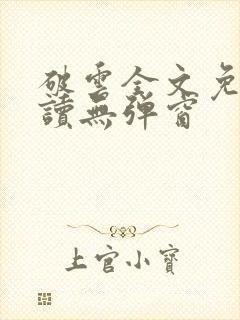 破雲全文免
讀無彈窗
上官小寶